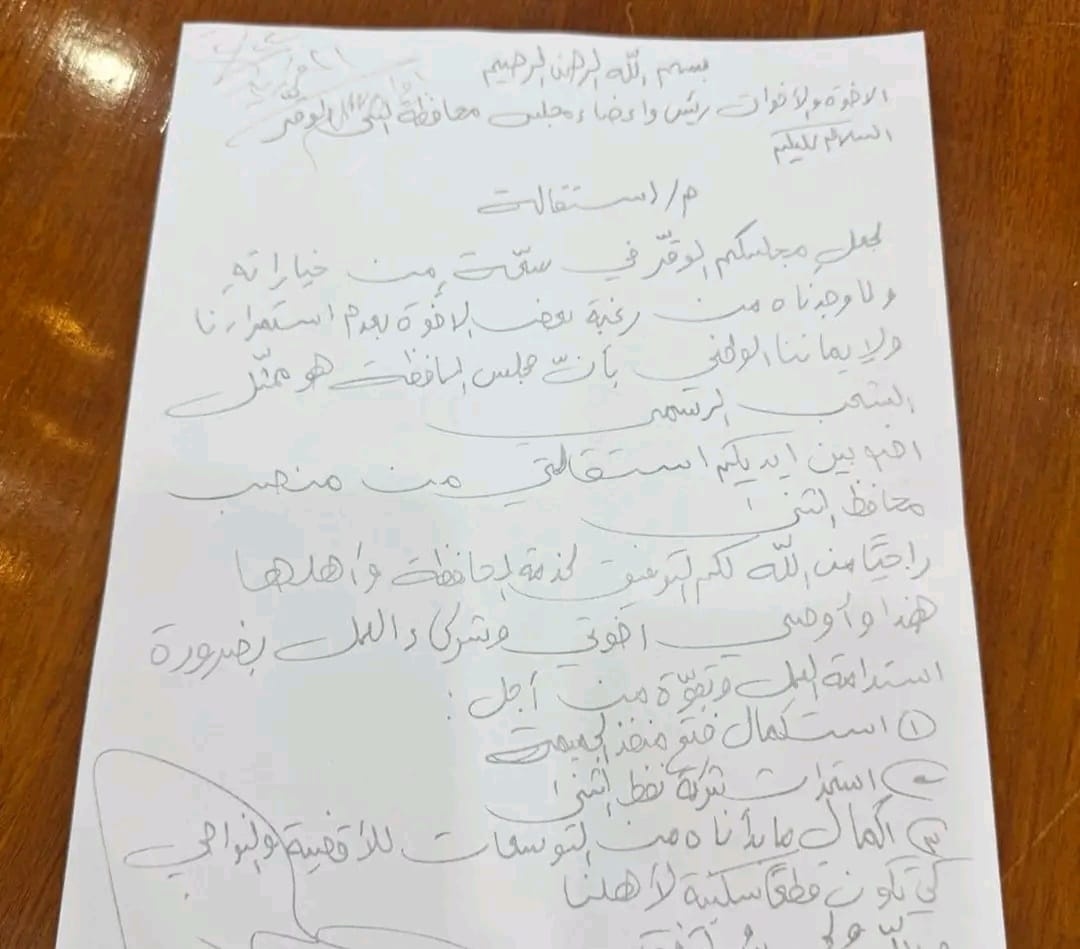 بسم الله الرحمن الرحيم
الاخوة والأخوات رئيس واعضاء مجلس محافظة المثنى الموقر
السلام عليكم
م/ استقالة
لجعل مجلسكم الموقّر في سعّة من خياراتهِ
ولما وجدناه من رغبة بعض الاخُوة بعدم استمرارنا
ولايماننا الوطني بأنّ مجلس المحافظة هو ممثّل
الشعب الرسمي
اضع بين ايديكم استقالتي من منصب
محافظ المثنى
راجيًا من الله لكم التوفيق لخدمة المحافظة وأهلها
هذا وأوصي اخوتي وشركاء العمل بضرورة
استدامة العمل وبقوّة من أجل :
١ استكمال فتح منفذ الجميمة
٢ استحداث شركة نفط المثنى
٣ اكمال ما بدأناه من التوسعات للأقضية والنواحي
كي تكون قطعًا سكنية لأهلنا